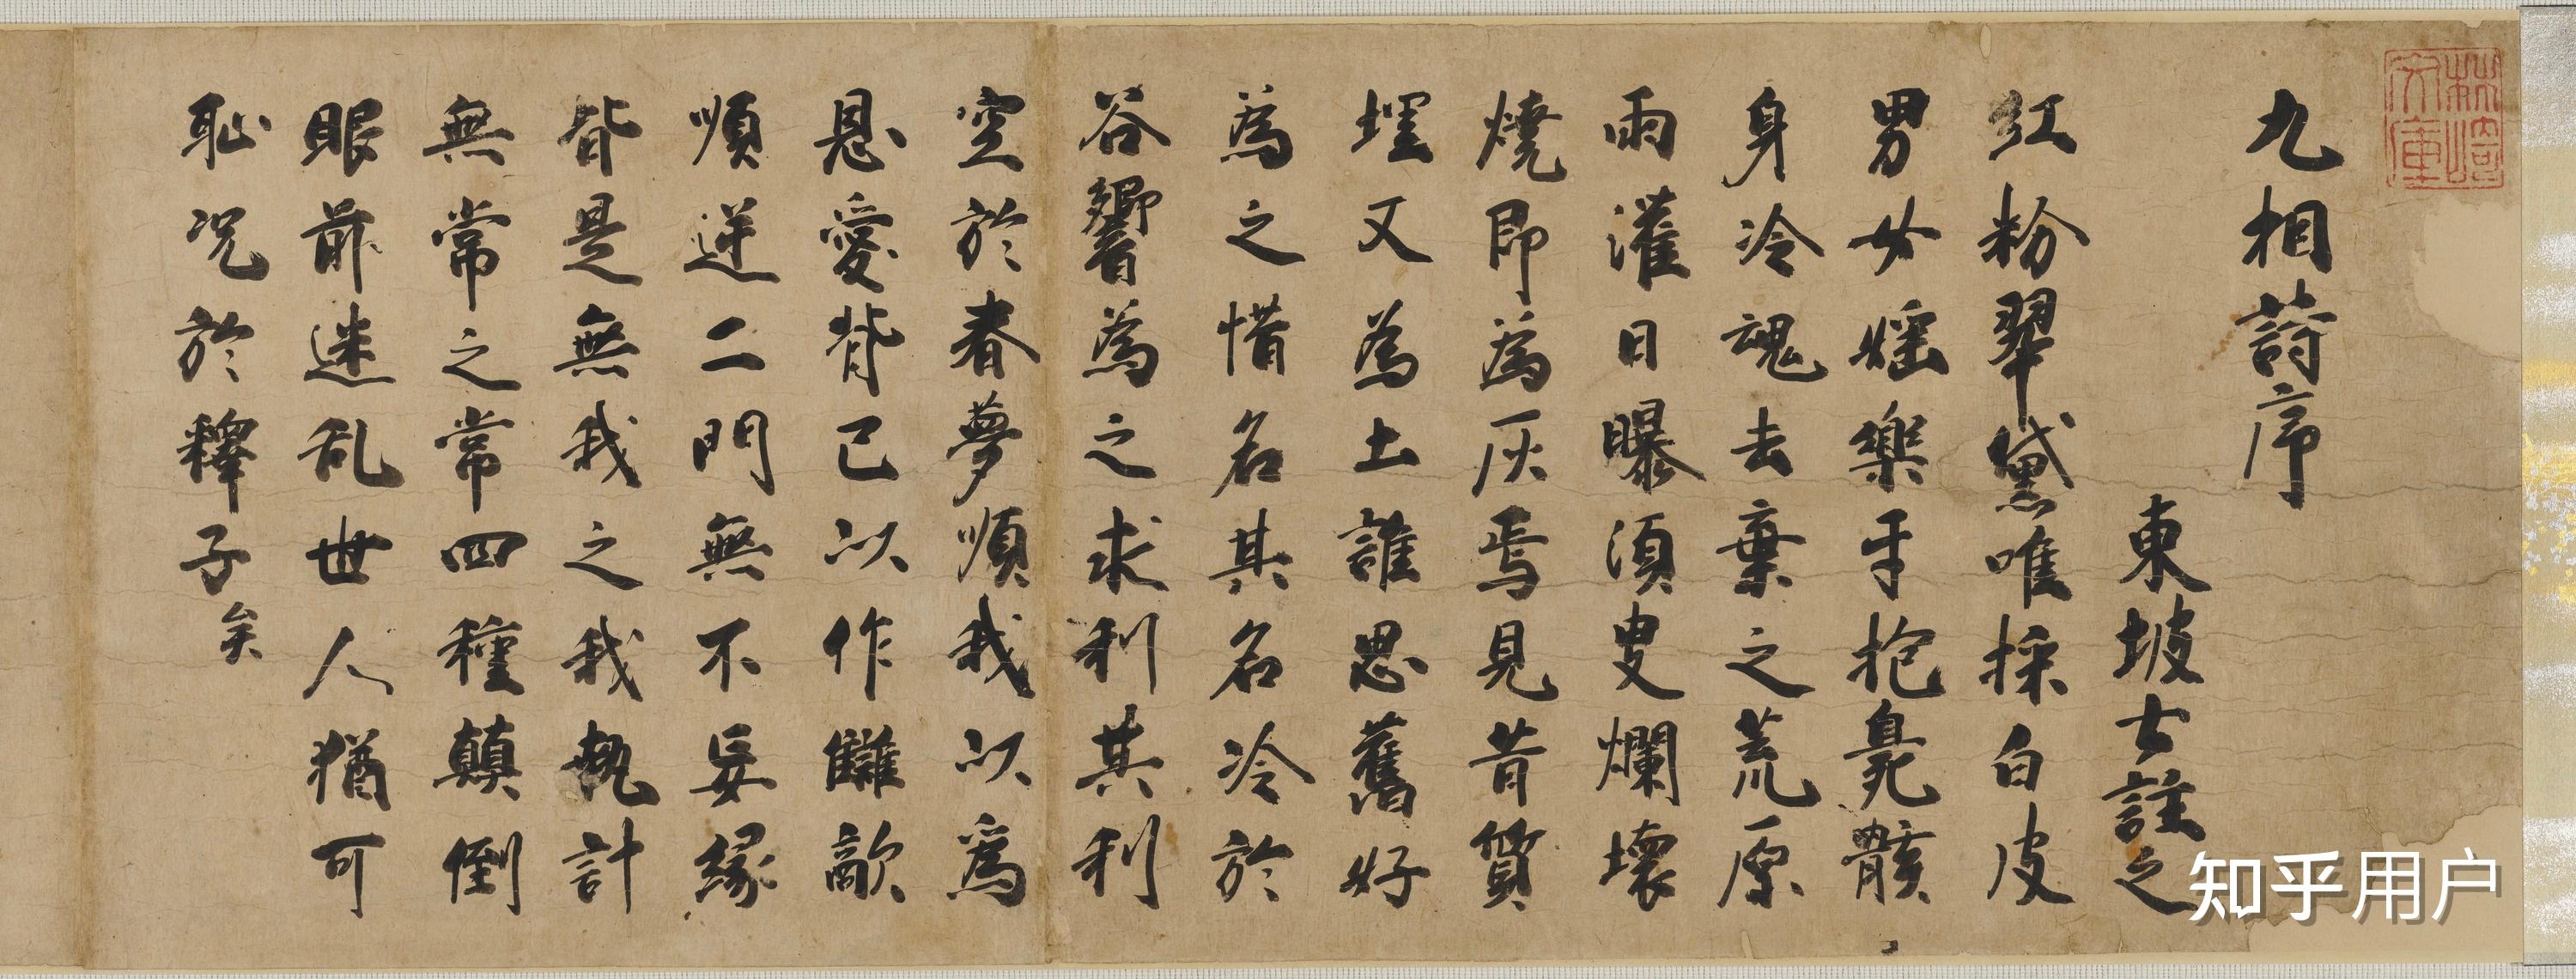 九相詩序
東坡士註之
红粉翠黛唯採白皮
男女婬樂手抱臰骸
身冷魂去棄之荒原
雨灌日曝須臾爛壞
燒即為灰焉見昔質
埋又為土誰思舊好
為之惜名其名冷於
谷響為之求利其利
空於春夢順我以為
恩愛背已以作讎敵
順逆二門無不妄緣
皆是無我之我執計
無常之常四種顛倒
眼前迷乱世人猶可
恥况於釋子矣
林崎文庫
知乎用户